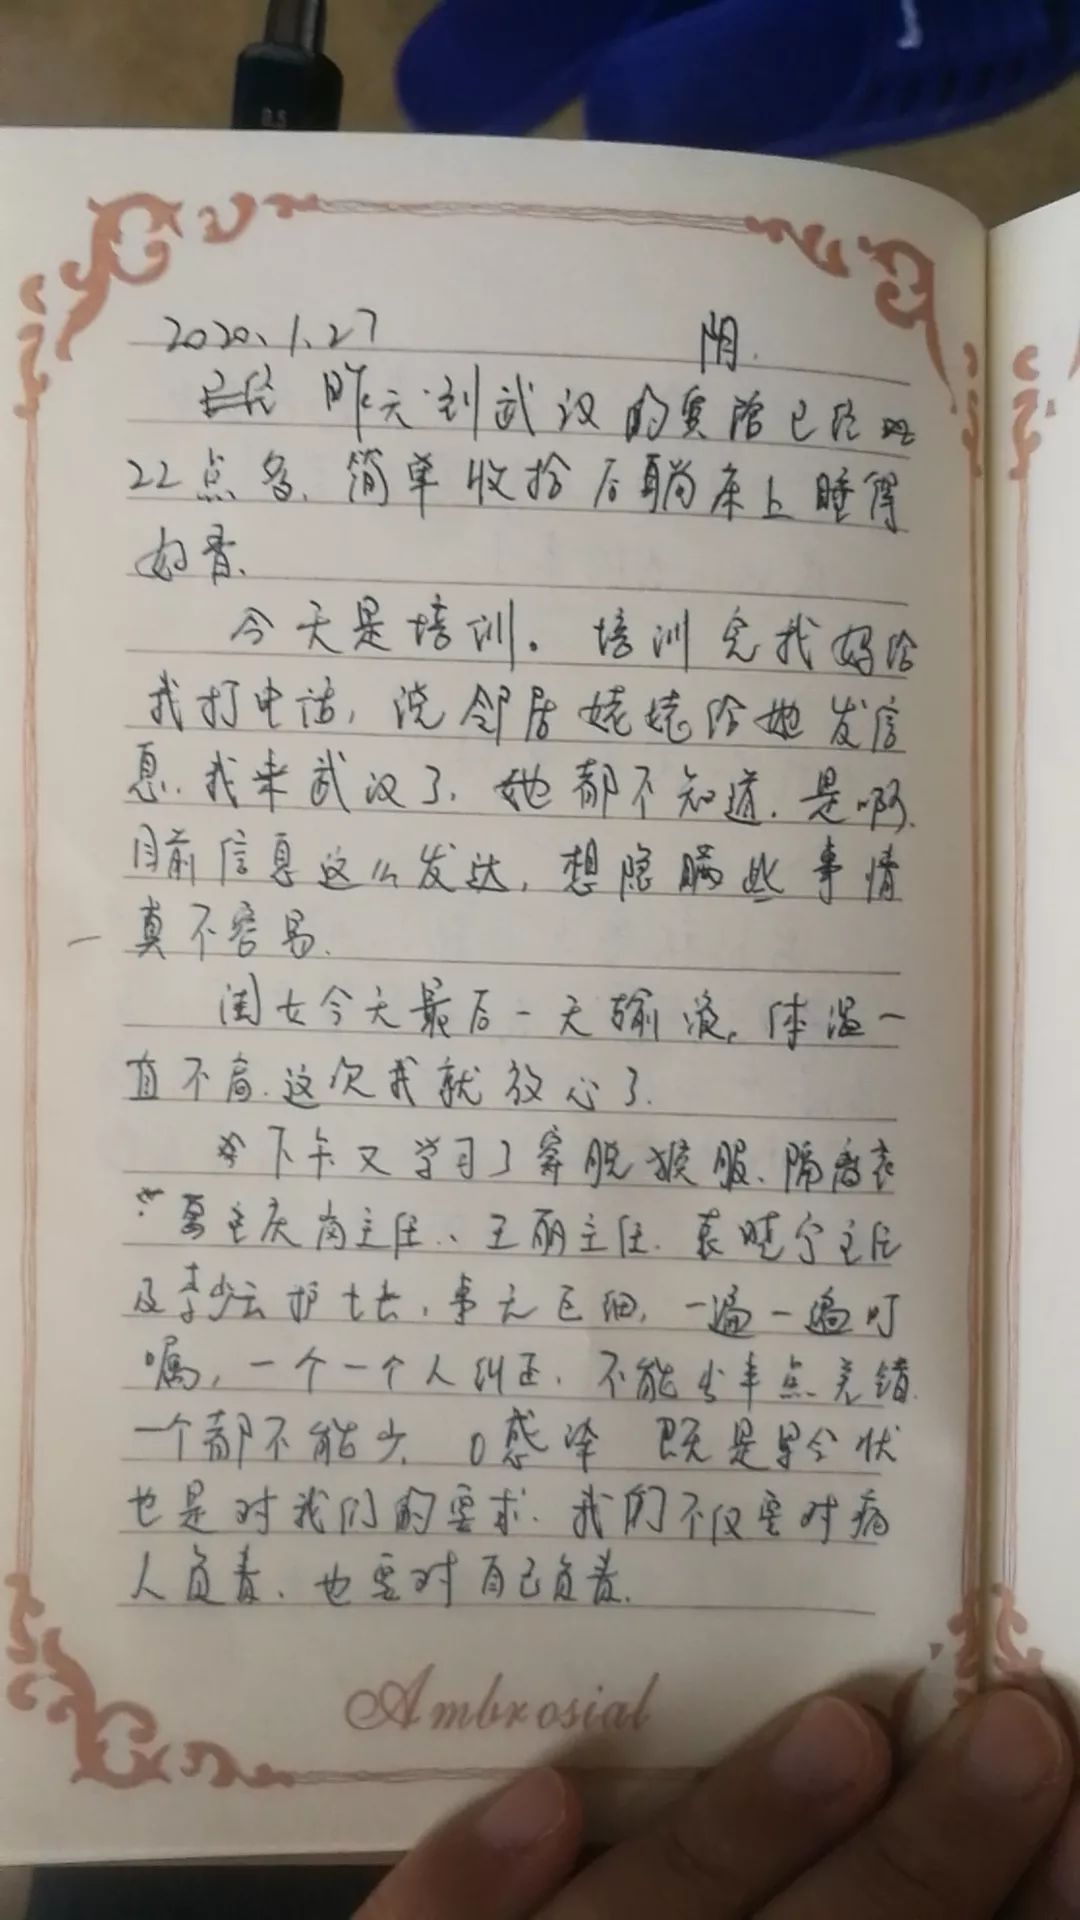 2020.1.27 阴.
昨天到武汉的宾馆已经
22点多.简单收拾后躺床上睡得
好香.
今天是培训。培训完我妈给
我打电话,说邻居姥姥给她发信
息.我来武汉了.她都不知道.是啊.
目前信息这么发达,想隐瞒些事情
真不容易.
闺女今天最后一天输液.体温一
直不高.这次我就放心了.
下午又学习了穿脱猴服、隔离衣
主任、王丽主任.袁晓宁主任
及李少云护士长,事无巨细,一遍一遍叮
嘱,一个一个人纠正.不能出半点差错.
一个都不能少.0感染 既是军令状
也是对我们的要求.我们不仅要对病
人负责.也要对自己负责.
Ambrosial
0.5